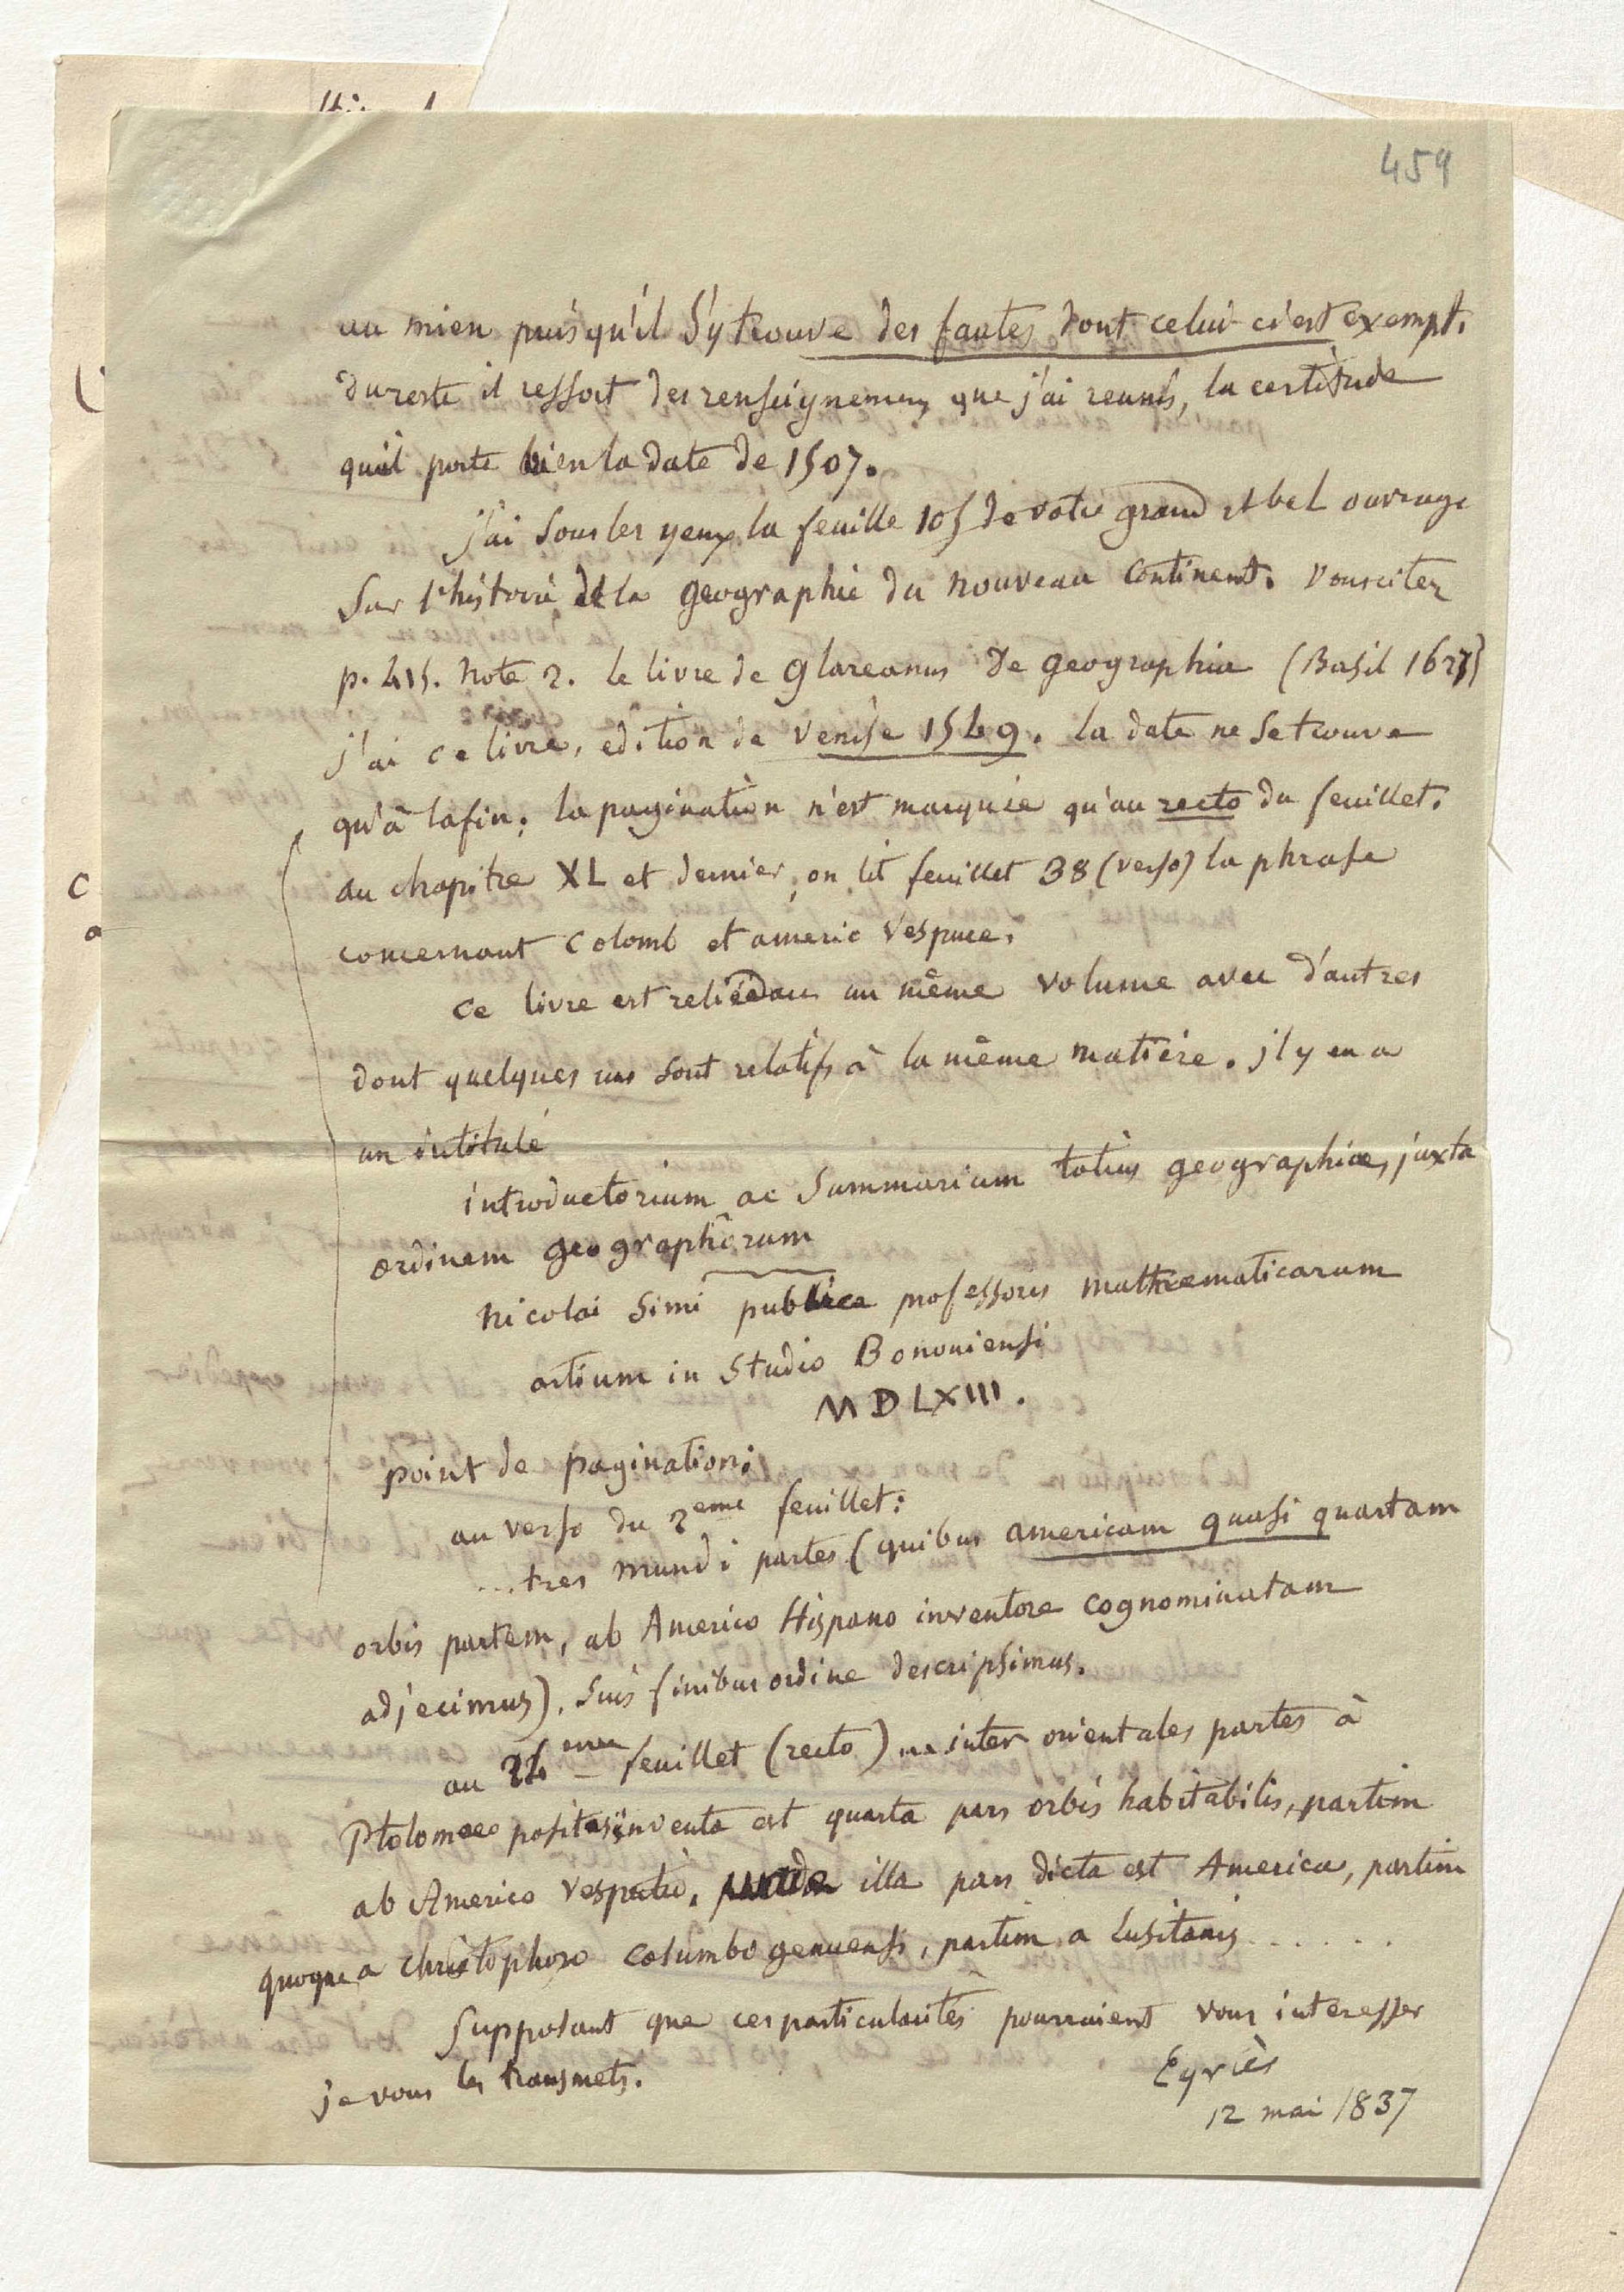 459
au mien puisqu'il s'y trouve des fautes dont celui-ci est exempt.
du reste il ressort des renseignemens que j'ai reunis, la certitude
qu'il porte bien la date de 1507.
j'ai sous les yeux la feuille 105 de votre grand et bel ouvrage
sur l'histoire de la geographie du nouveau continent. vous citez
p. 415. note 2. le livre de glareanus de geographia (Basil 1627)
j'ai ce livre, edition de venise 1549. la date ne se trouve
qu'à la fin; la pagination n'est marquée qu'au recto du feuillet.
au chapitre XL et dernier, on lit feuillet 38 (verso) la phrase
concernant Colomb et americ vespuce.
ce livre est relié dans un même volume avec d'autres
dont quelques uns sont relatifs à la même matière. il y en a
un intitulé
introductorium ac summarium totius geographiae, juxta
ordinem geographorum
nicolai simi publice professoris mathematicarum
artium in studio Bononiensi
MDLXIII.
point de pagination;
au verso du 2eme feuillet:
... tres mundi partes (quibus americam quasi quartam
orbis partem, ab Americo Hispano inventore cognominatam
adjecimus), suis finibus ordine descripsimus.
au 24eme feuillet (recto) ... inter orientales partes à
Ptolomaeo positas inventa est quarta pars orbis habitabilis, partim
ab Americo vesputio, illa pars dicta est America, partim
quoque a christophoro columbo genuensi, partim a lusitanis ......
Supposant que ces particularités pourraient vous interesser
je vous les transmets.
Eyriès
12 mai 1837